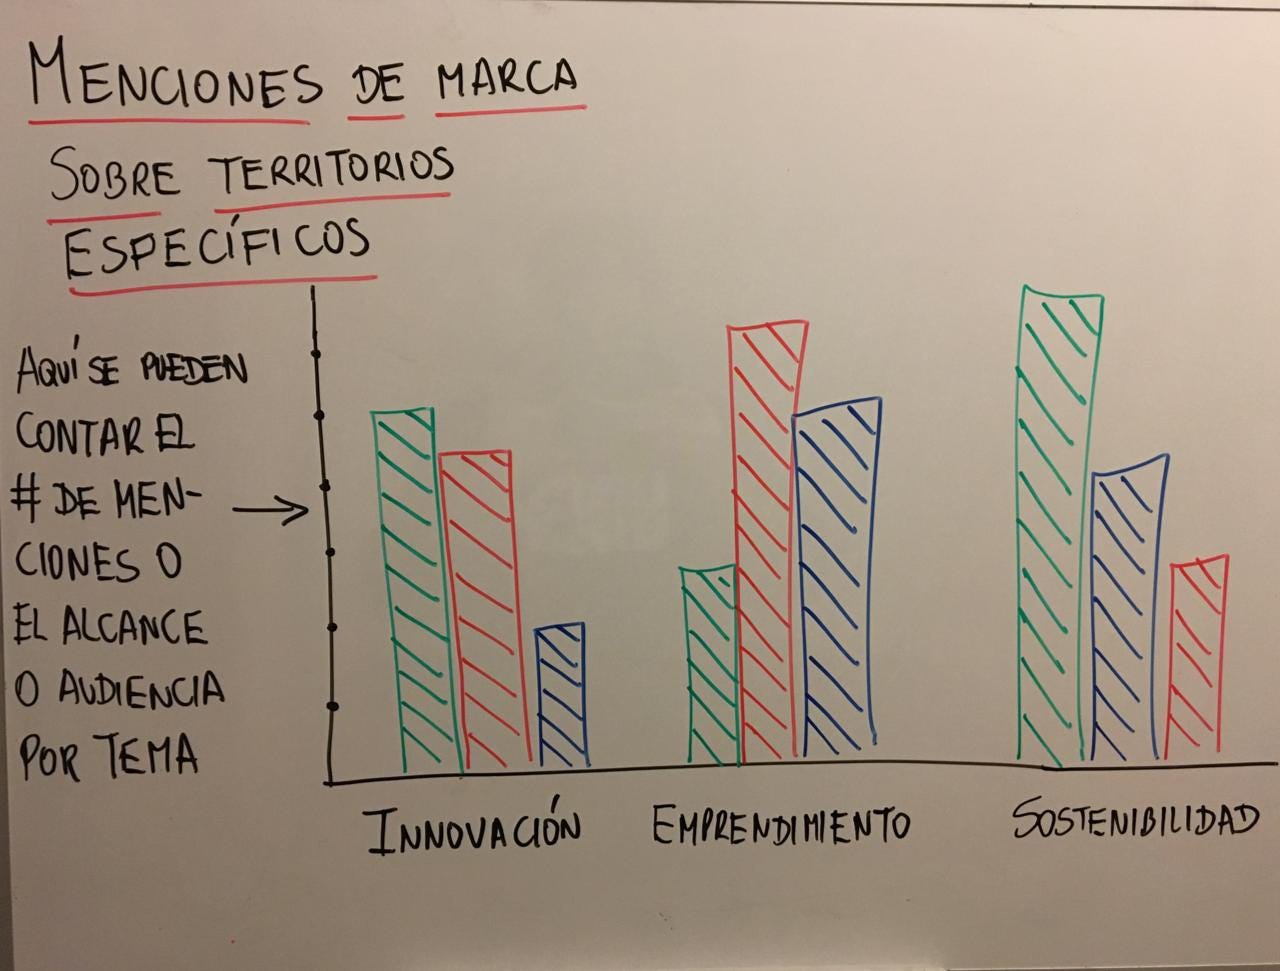 MENCIONES DE MARCA
SOBRE TERRITORIOS
ESPECÍFICOS
AQUÍ SE PUEDEN
CONTAR EL
# DE MEN-
CIONES O
EL ALCANCE
O AUDIENCIA
POR TEMA
INNOVACIÓN EMPRENDIMIENTO SOSTENIBILIDAD